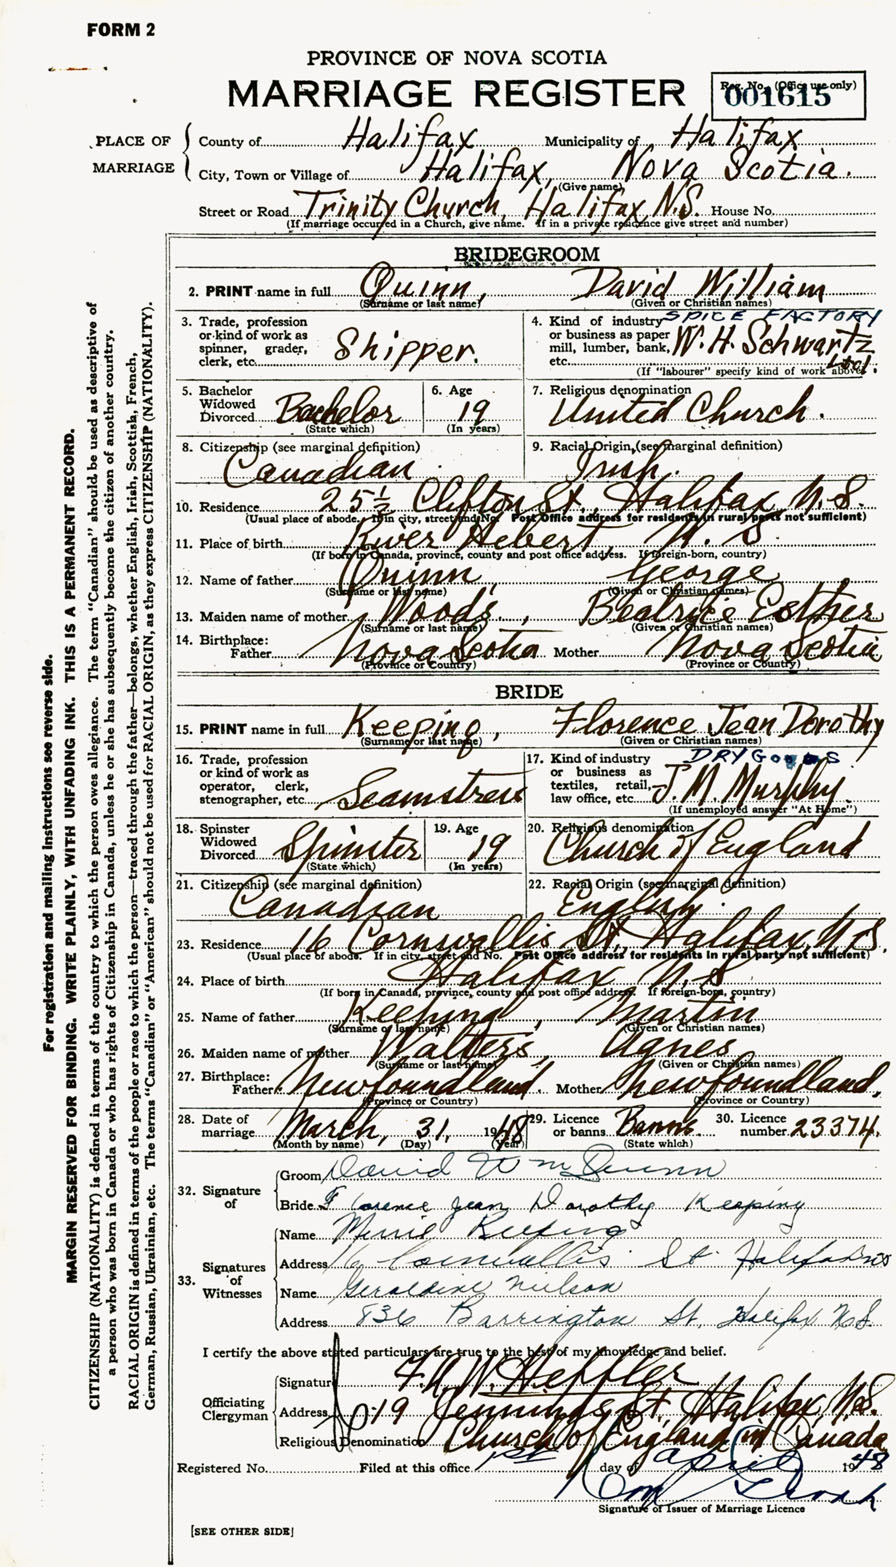 FORM 2
PROVINCE OF NOVA SCOTIA
MARRIAGE REGISTER
Reg. No. (Office use only)
001615
PLACE OF MARRIAGE
County of Halifax Municipality of Halifax
City, Town or Village of Halifax, Nova Scotia.
(Give name)
Street or Road Trinity Church, Halifax N.S. House No.
(If marriage occurred in a Church, give name. If in a private residence give street and number)
BRIDEGROOM
2. PRINT name in full Quinn, David William
(Surname or last name) (Given or Christian names)
3. Trade, profession or kind of work as spinner, grader, clerk, etc. Shipper.
4. Kind of industry or business as paper mill, lumber, bank, etc. SPICE FACTORY W. H. Schwartz Ltd.
(If "labourer" specify kind of work above)
5. Bachelor Widowed Divorced Bachelor
(State which)
6. Age 19
(In years)
7. Religious denomination United Church.
8. Citizenship (see marginal definition) Canadian
9. Racial Origin (see marginal definition) Irish.
10. Residence 25½ Clifton St., Halifax, N.S.
(Usual place of abode. If in city, street and No. Post Office address for residents in rural parts not sufficient)
11. Place of birth River Hebert, N. S.
(If born in Canada, province, county and post office address. If foreign-born, country)
12. Name of father Quinn, George
(Surname or last name) (Given or Christian names)
13. Maiden name of mother Woods, Beatrice Esther
(Surname or last name) (Given or Christian names)
14. Birthplace:
Father Nova Scotia Mother Nova Scotia
(Province or Country) (Province or Country)
BRIDE
15. PRINT name in full Keeping, Florence Jean Dorothy
(Surname or last name) (Given or Christian names)
16. Trade, profession or kind of work as operator, clerk, stenographer, etc. Seamstress
17. Kind of industry or business as textiles, retail, law office, etc. DRY GOODS J. M. Murphy.
(If unemployed answer "At Home")
18. Spinster Widowed Divorced Spinster
(State which)
19. Age 19
(In years)
20. Religious denomination Church of England
21. Citizenship (see marginal definition) Canadian
22. Racial Origin (see marginal definition) English.
23. Residence 16 Cornwallis St., Halifax, N.S.
(Usual place of abode. If in city, street and No. Post Office address for residents in rural parts not sufficient)
24. Place of birth Halifax N.S.
(If born in Canada, province, county and post office address. If foreign-born, country)
25. Name of father Keeping, Martin
(Surname or last name) (Given or Christian names)
26. Maiden name of mother Walters, Agnes
(Surname or last name) (Given or Christian names)
27. Birthplace:
Father Newfoundland. Mother Newfoundland,
(Province or Country) (Province or Country)
28. Date of marriage March, 31, 1948
(Month by name) (Day) (Year)
29. Licence or banns Banns
(State which)
30. Licence number 23374.
32. Signature of
Groom David Wm Quinn
Bride Florence Jean Dorothy Keeping
33. Signatures of Witnesses
Name Keeping
Address 16 Cornwallis St. Halifax NS
Name Geraldine Neilson
Address 836 Barrington St, Halifax N.S.
I certify the above stated particulars are true to the best of my knowledge and belief.
Officiating Clergyman
Signature F. A. W. Heffler
Address 19 Jennings St, Halifax, N.S.
Religious Denomination Church of England in Canada
Registered No. Filed at this office 1st day of April 1948
Signature of Issuer of Marriage Licence
[SEE OTHER SIDE]
For registration and mailing instructions see reverse side.
MARGIN RESERVED FOR BINDING. WRITE PLAINLY, WITH UNFADING INK. THIS IS A PERMANENT RECORD.
CITIZENSHIP (NATIONALITY) is defined in terms of the country to which the person owes allegiance. The term "Canadian" should be used as descriptive of
a person who was born in Canada or who has rights of Citizenship in Canada, unless he or she has subsequently become the citizen of another country.
RACIAL ORIGIN is defined in terms of the people or race to which the person—traced through the father—belongs, whether English, Irish, Scottish, French,
German, Russian, Ukrainian, etc. The terms "Canadian" or "American" should not be used for RACIAL ORIGIN, as they express CITIZENSHIP (NATIONALITY).